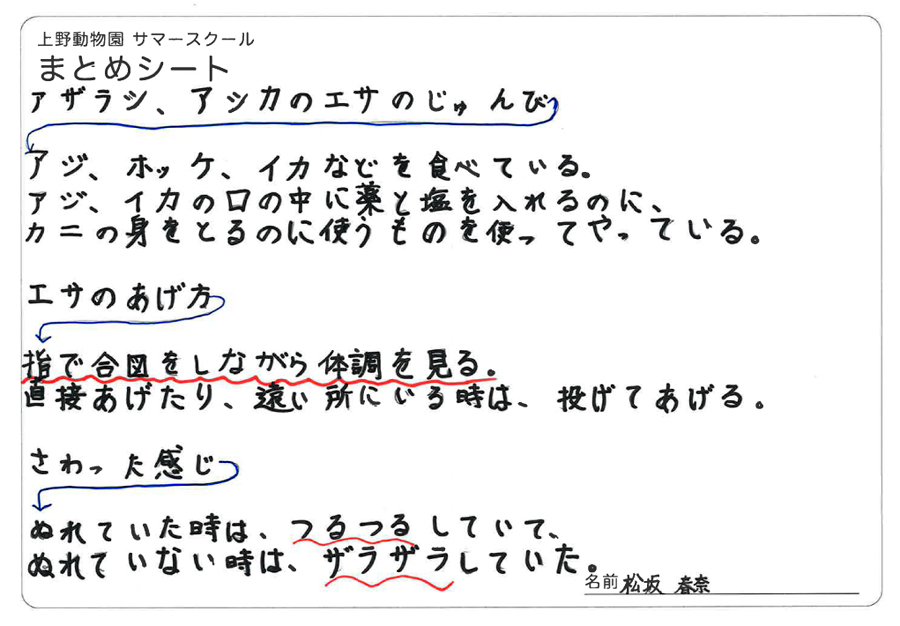 上野動物園 サマースクール
まとめシート
アザラシ、アシカのエサのじゅんび
アジ、ホッケ、イカなどを食べている。
アジ、イカの口の中に薬と塩を入れるのに、
カニの身をとるのに使うものを使ってやっている。
エサのあげ方
指で合図をしながら体調を見る。
直接あげたり、遠い所にいる時は、投げてあげる。
さわった感じ
ぬれていた時は、つるつるしていて、
ぬれていない時は、ザラザラしていた。
名前 松坂 春奈